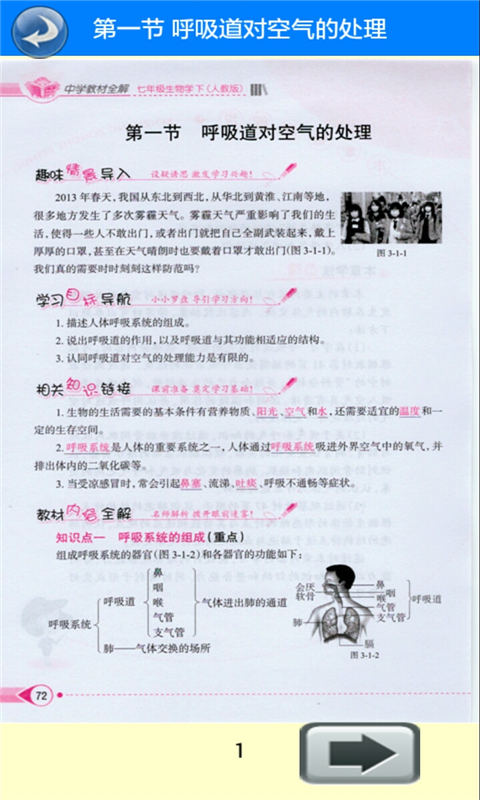 第一节 呼吸道对空气的处理
中学教材全解 七年级生物学下(人教版)
第一节 呼吸道对空气的处理
趣味情景导入 设疑诱思 激发学习兴趣!
2013 年春天,我国从东北到西北,从华北到黄淮、江南等地,
很多地方发生了多次雾霾天气。雾霾天气严重影响了我们的生
活,使得一些人不敢出门,或者出门就把自己全副武装起来,戴上
厚厚的口罩,甚至在天气晴朗时也要戴着口罩才敢出门(图 3-1-1)。
我们真的需要时时刻刻这样防范吗?
图 3-1-1
学习目标导航 小小罗盘 导引学习方向!
1. 描述人体呼吸系统的组成。
2. 说出呼吸道的作用,以及呼吸道与其功能相适应的结构。
3. 认同呼吸道对空气的处理能力是有限的。
相关知识链接 课前准备 奠定学习基础!
1. 生物的生活需要的基本条件有营养物质、阳光、空气和水,还需要适宜的温度和一
定的生存空间。
2. 呼吸系统是人体的重要系统之一,人体通过呼吸系统吸进外界空气中的氧气,并
排出体内的二氧化碳等。
3. 当受凉感冒时,常会引起鼻塞、流涕、吐痰、呼吸不通畅等症状。
教材内容全解 名师解析 拨开眼前迷雾!
知识点一 呼吸系统的组成(重点)
组成呼吸系统的器官(图 3-1-2)和各器官的功能如下:
呼吸系统
呼吸道
鼻
咽
喉
气管
支气管
气体进出肺的通道
肺——气体交换的场所
会厌
软骨
肺
鼻
咽
喉
气管
支气管
呼吸道
膈
图 3-1-2
72
1